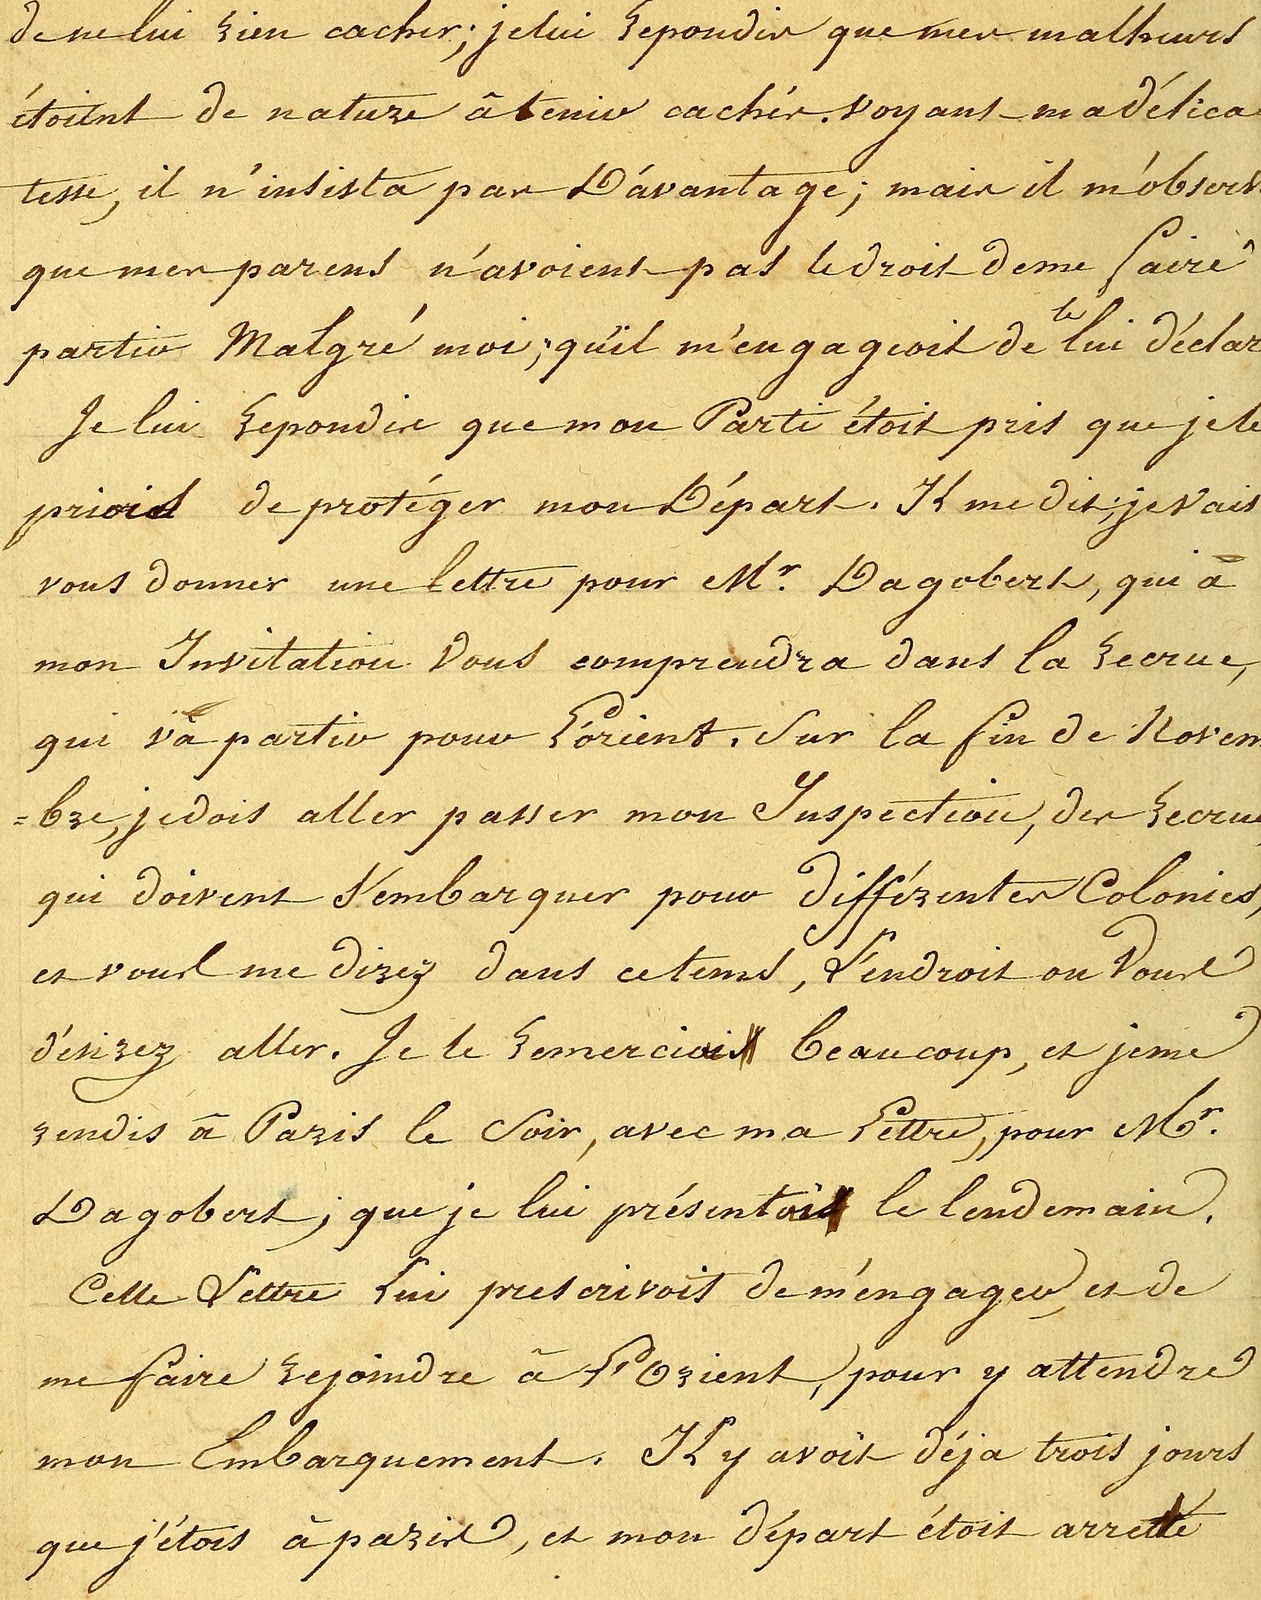 de ne lui rien cacher; je lui repondis que mes malheurs
étoient de nature â tenir cachés. voyant ma délica
tesse, il n'insista pas D'avantage; mais il m'observ
que mes parens n'avoient pas le droit de me faire
partir Malgré moi; qu'il m'engageoit de le lui déclar
Je lui repondis que mon Parti étoit pris que je le
priois de protéger mon Départ. Il me dit; je vais
vous donner une lettre pour Mr. Dagobert, qui à
mon Invitation vous comprendra dans la recrue,
qui va partir pour L'orient. Sur la fin de Novem
=bre, je dois aller passer mon Inspection, des recrue
qui doivent s'embarquer pour différentes Colonies,
et vous me direz dans ce tems, l'endroit ou vous
désirez aller. Je le remerciai beaucoup, et je me
rendis â Paris le soir, avec ma lettre, pour Mr.
Dagobert; que je lui présentai le lendemain.
Cette lettre lui prescrivoit de m'éngager, et de
me faire rejoindre â L'Orient, pour y attendre
mon Embarquement. Il y avoit déja trois jours
que j'étois â paris, et mon départ étoit arretté